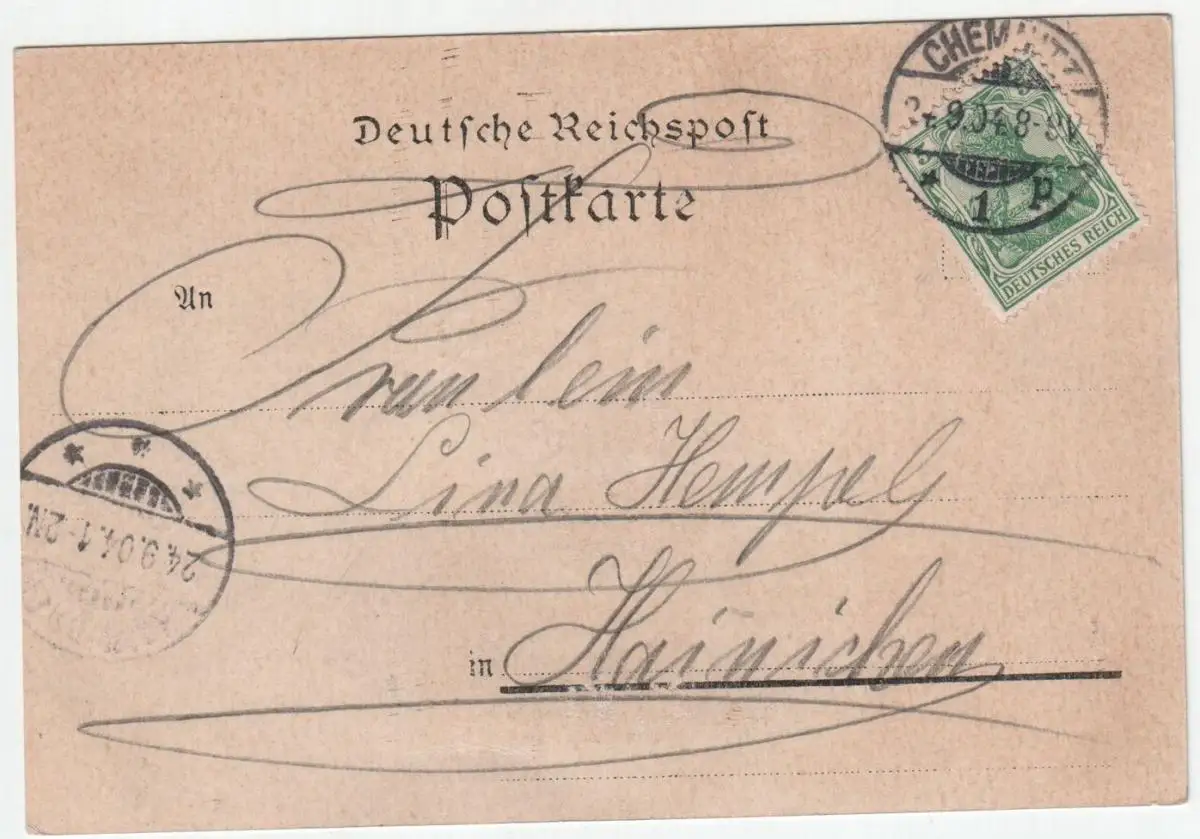 Deutsche Reichspost
Postkarte
CHEMNITZ
24.9.04.8-9V
1 p
DEUTSCHES REICH
An
Fraulein
Lina Hempel
in Hainichen
24.9.04.1-2N.